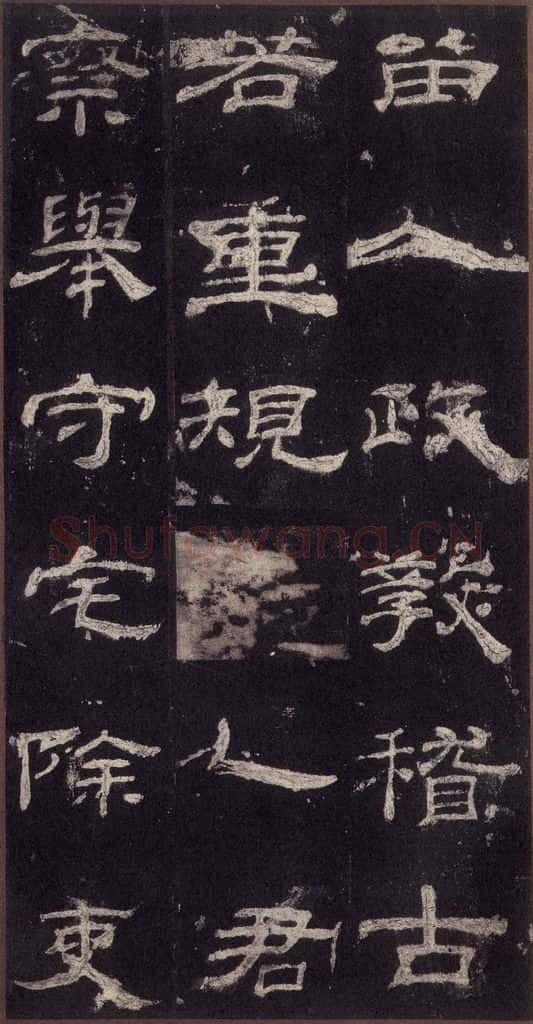 留人政教稽古
若重規乙君
察舉守宅除吏
Shufawang.CN